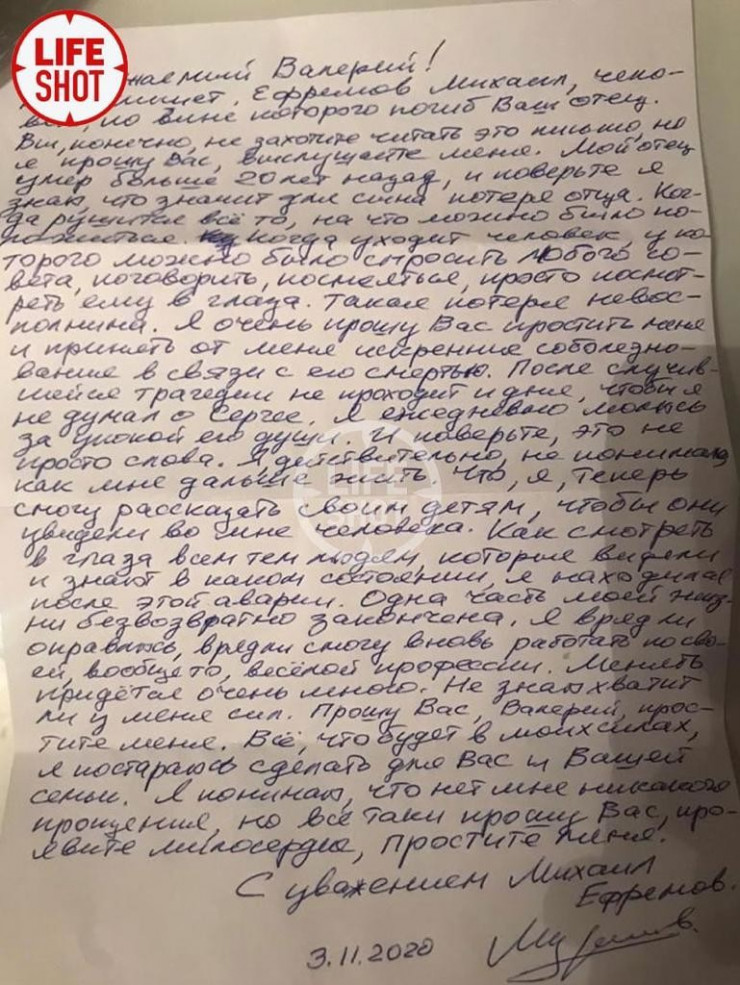 LIFE
SHOT
Валерий!
Ефремов Михаил, чело-
по вине которого погиб Ваш отец.
Вы, конечно, не захотите читать это письмо, но
я прошу Вас, выслушайте меня. Мой отец
умер больше 20 лет назад, и поверьте я
знаю, что значит для сына потеря отца. Ког-
да рушится всё то, на что можно было по-
ложиться. Когда уходит человек, у ко
торого можно было спросить любого со-
вета, поговорить, посмеяться, просто посмот-
реть ему в глаза. Такая потеря невос-
полнима. Я очень прошу Вас простить меня
и принять от меня искренние соболезно-
вание в связи с его смертью. После случив-
шейся трагедии не проходит и дня, чтобы я
не думал о Сергее. Я ежедневно молюсь
за упокой его души. И поверьте, это не
просто слова. Я действительно, не понимаю
как мне дальше жить. Что, я, теперь
смогу рассказать своим детям, чтобы они
увидели во мне человека. Как смотреть
в глаза всем тем людям, которые видели
и знают в каком состоянии, я находился
после этой аварии. Одна часть моей жиз-
ни безвозвратно закончена. Я вряд ли
оправлюсь, врядли смогу вновь работать по сво-
ей, вообще то, весёлой профессии. Менять
придётся очень много. Не знаю хватит
ли у меня сил. Прошу Вас, Валерий, прос-
тите меня. Всё, что будет в моих силах,
я постараюсь сделать для Вас и Вашей
семьи. Я понимаю, что нет мне никакого
прощения, но всё таки прошу Вас, про-
явите милосердие, простите меня.
С уважением Михаил
Ефремов.
3.11.2020
LIFE
SHOT